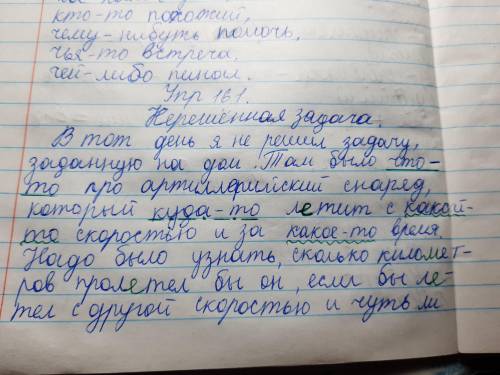 кто-то похожий,
чему-нибуть помочь,
чья-то встреча,
чей-либо пенал.
Упр 161.
Нерешённая задача.
В тот день я не решил задачу,
заданную на дом. Там было что-
то про артиллерийский снаряд,
который куда-то летит с какой-
то скоростью и за какое-то время.
Надо было узнать, сколько километ-
ров пролетел бы он, если бы ле-
тел с другой скоростью и чуть ли